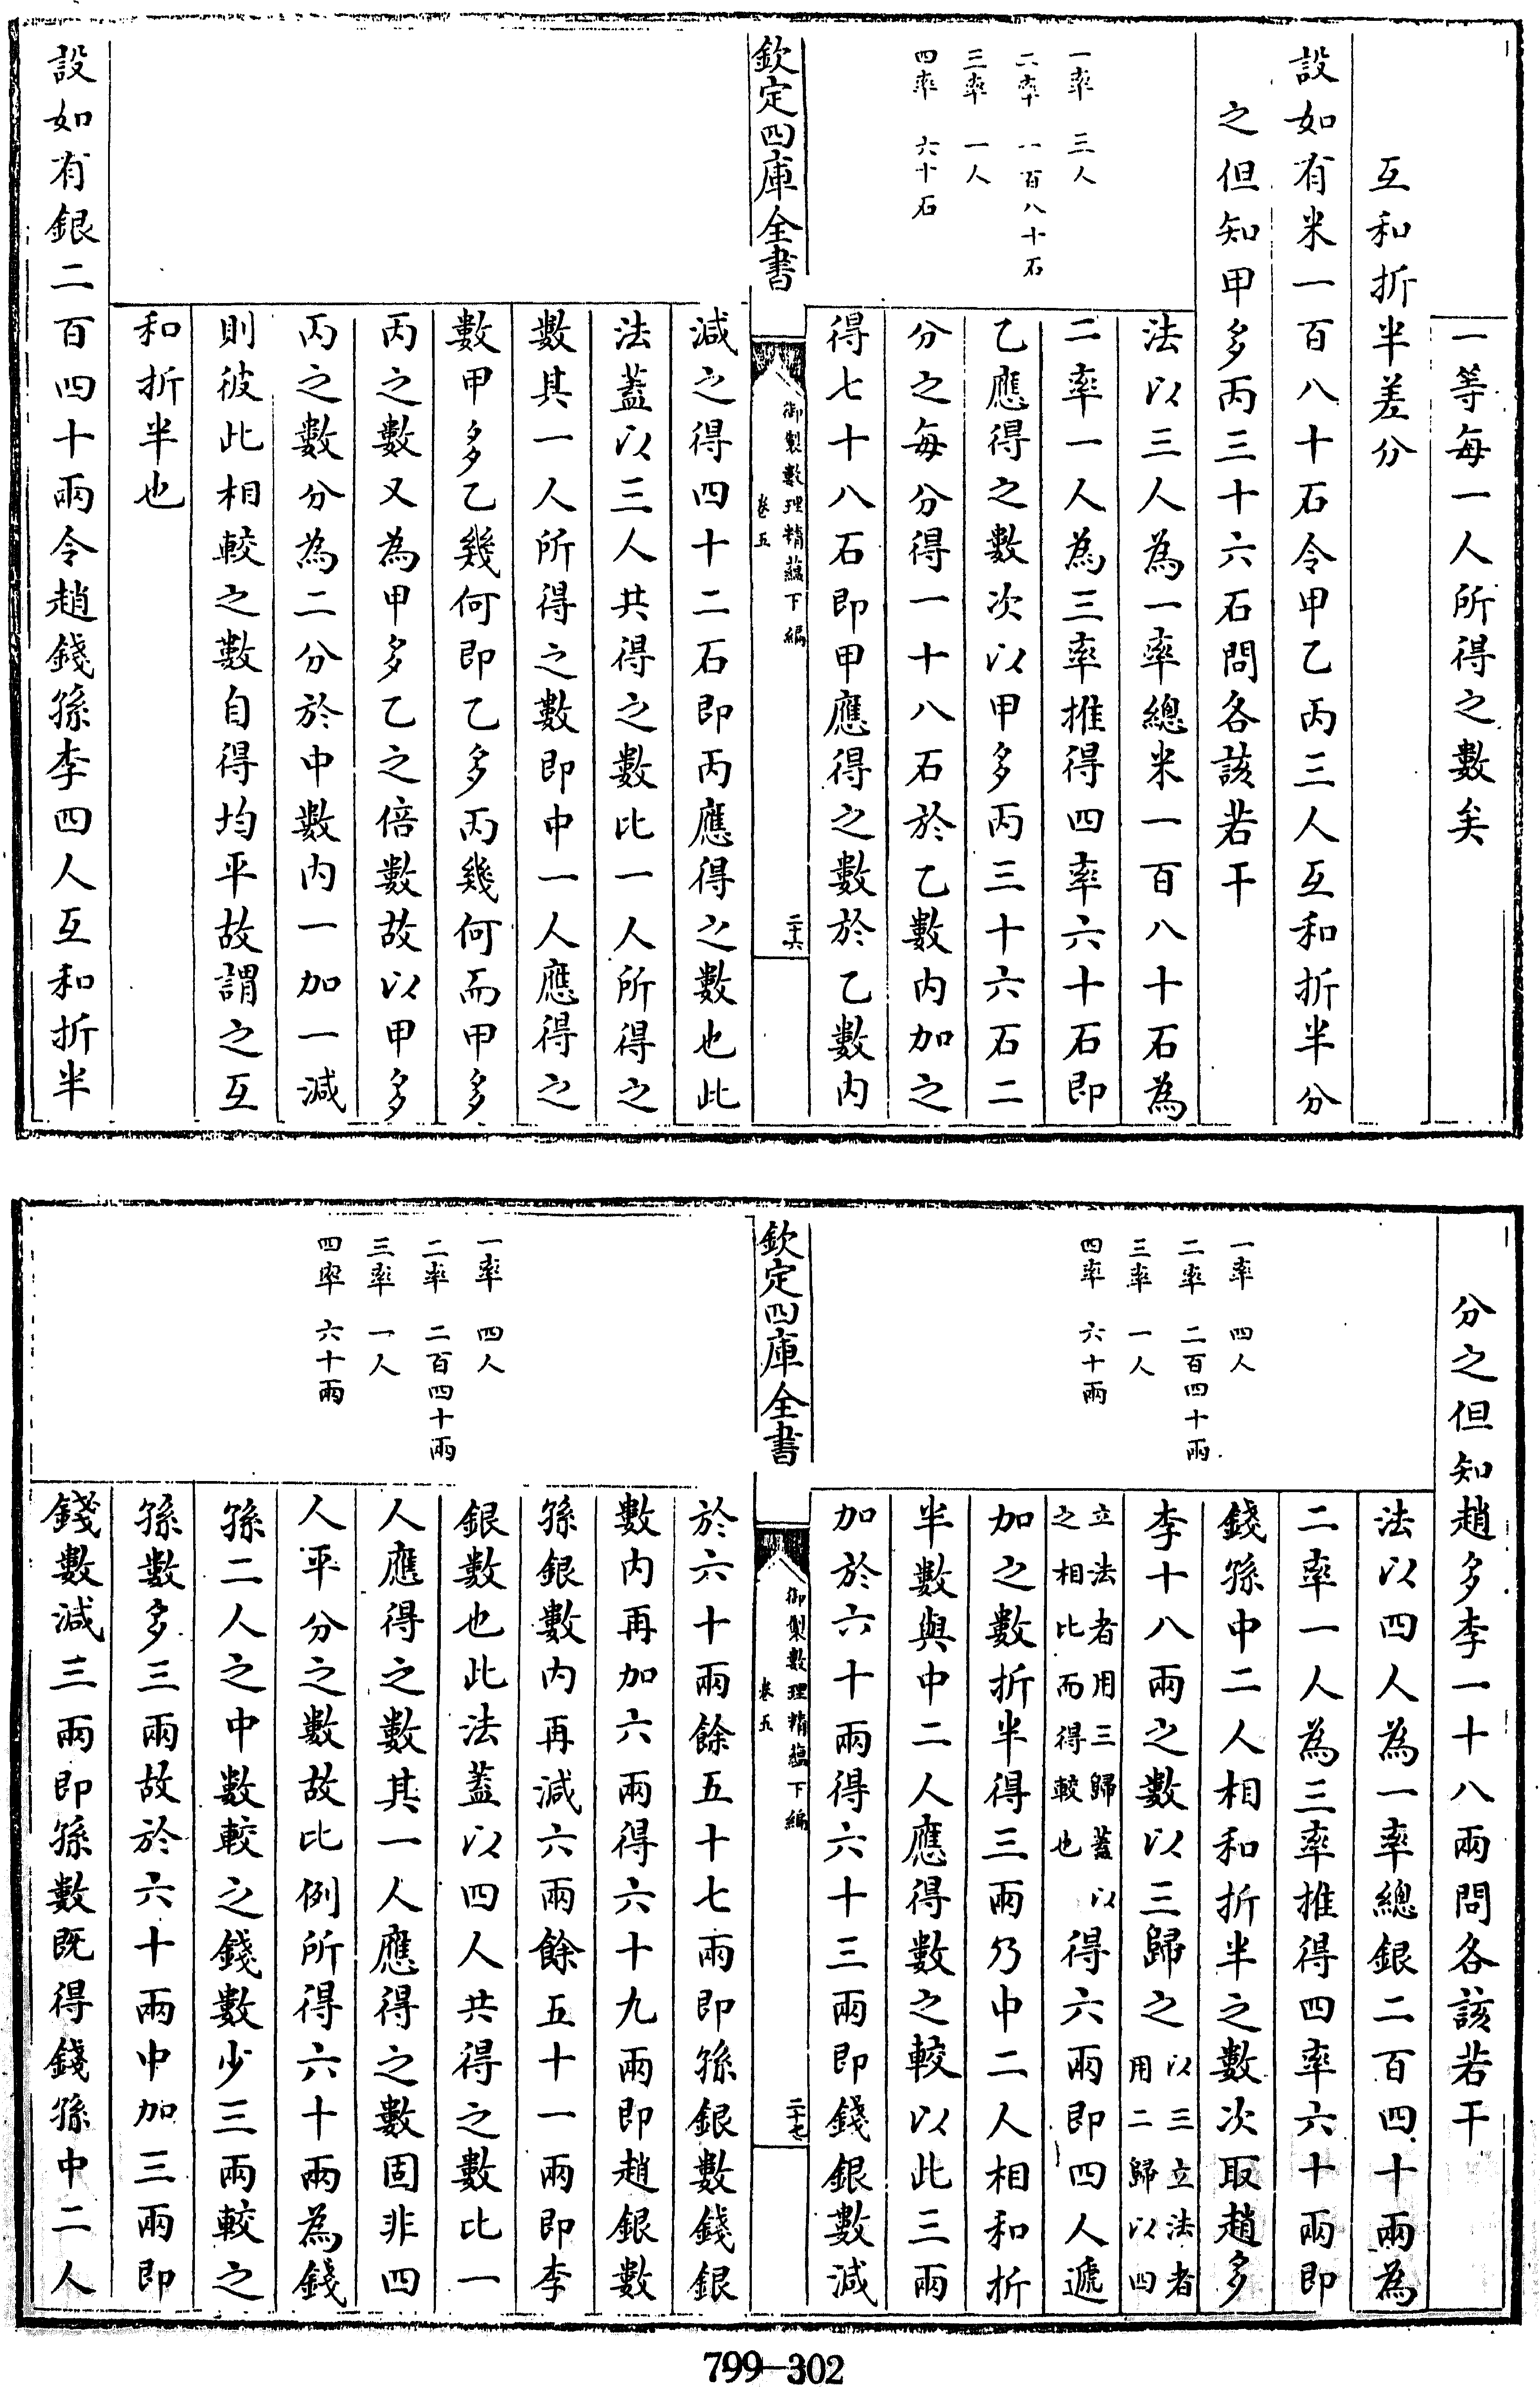 一等每一人所得之數矣
互和折半差分
設如有米一百八十石令甲乙丙三人互和折半分
之但知甲多丙三十六石問各該若干
一率 三人
二率 一百八十石
三率 一人
四率 六十石
法以三人為一率總米一百八十石為
二率一人為三率推得四率六十石即
乙應得之數次以甲多丙三十六石二
分之每分得一十八石於乙數內加之
得七十八石即甲應得之數於乙數內
欽定四庫全書
御製數理精蘊下編
卷五
二十六
減之得四十二石即丙應得之數也此
法蓋以三人共得之數比一人所得之
數其一人所得之數即中一人應得之
數甲多乙幾何即乙多丙幾何而甲多
丙之數又為甲多乙之倍數故以甲多
丙之數分為二分於中數內一加一減
則彼此相較之數自得均平故謂之互
和折半也
設如有銀二百四十兩令趙錢孫李四人互和折半
分之但知趙多李一十八兩問各該若干
一率 四人
二率 二百四十兩
三率 一人
四率 六十兩
法以四人為一率總銀二百四十兩為
二率一人為三率推得四率六十兩即
錢孫中二人相和折半之數次取趙多
李十八兩之數以三歸之以三立法者用二歸以四
立法者用三歸蓋以之相比而得較也得六兩即四人遞
加之數折半得三兩乃中二人相和折
半數與中二人應得數之較以此三兩
加於六十兩得六十三兩即錢銀數減
欽定四庫全書
御製數理精蘊下編
卷五
二十七
一率 四人
二率 二百四十兩
三率 一人
四率 六十兩
於六十兩餘五十七兩即孫銀數錢銀
數內再加六兩得六十九兩即趙銀數
孫銀數內再減六兩餘五十一兩即李
銀數也此法蓋以四人共得之數比一
人應得之數其一人應得之數固非四
人平分之數故比例所得六十兩為錢
孫二人之中數較之錢數少三兩較之
孫數多三兩故於六十兩中加三兩即
錢數減三兩即孫數既得錢孫中二人
799-302